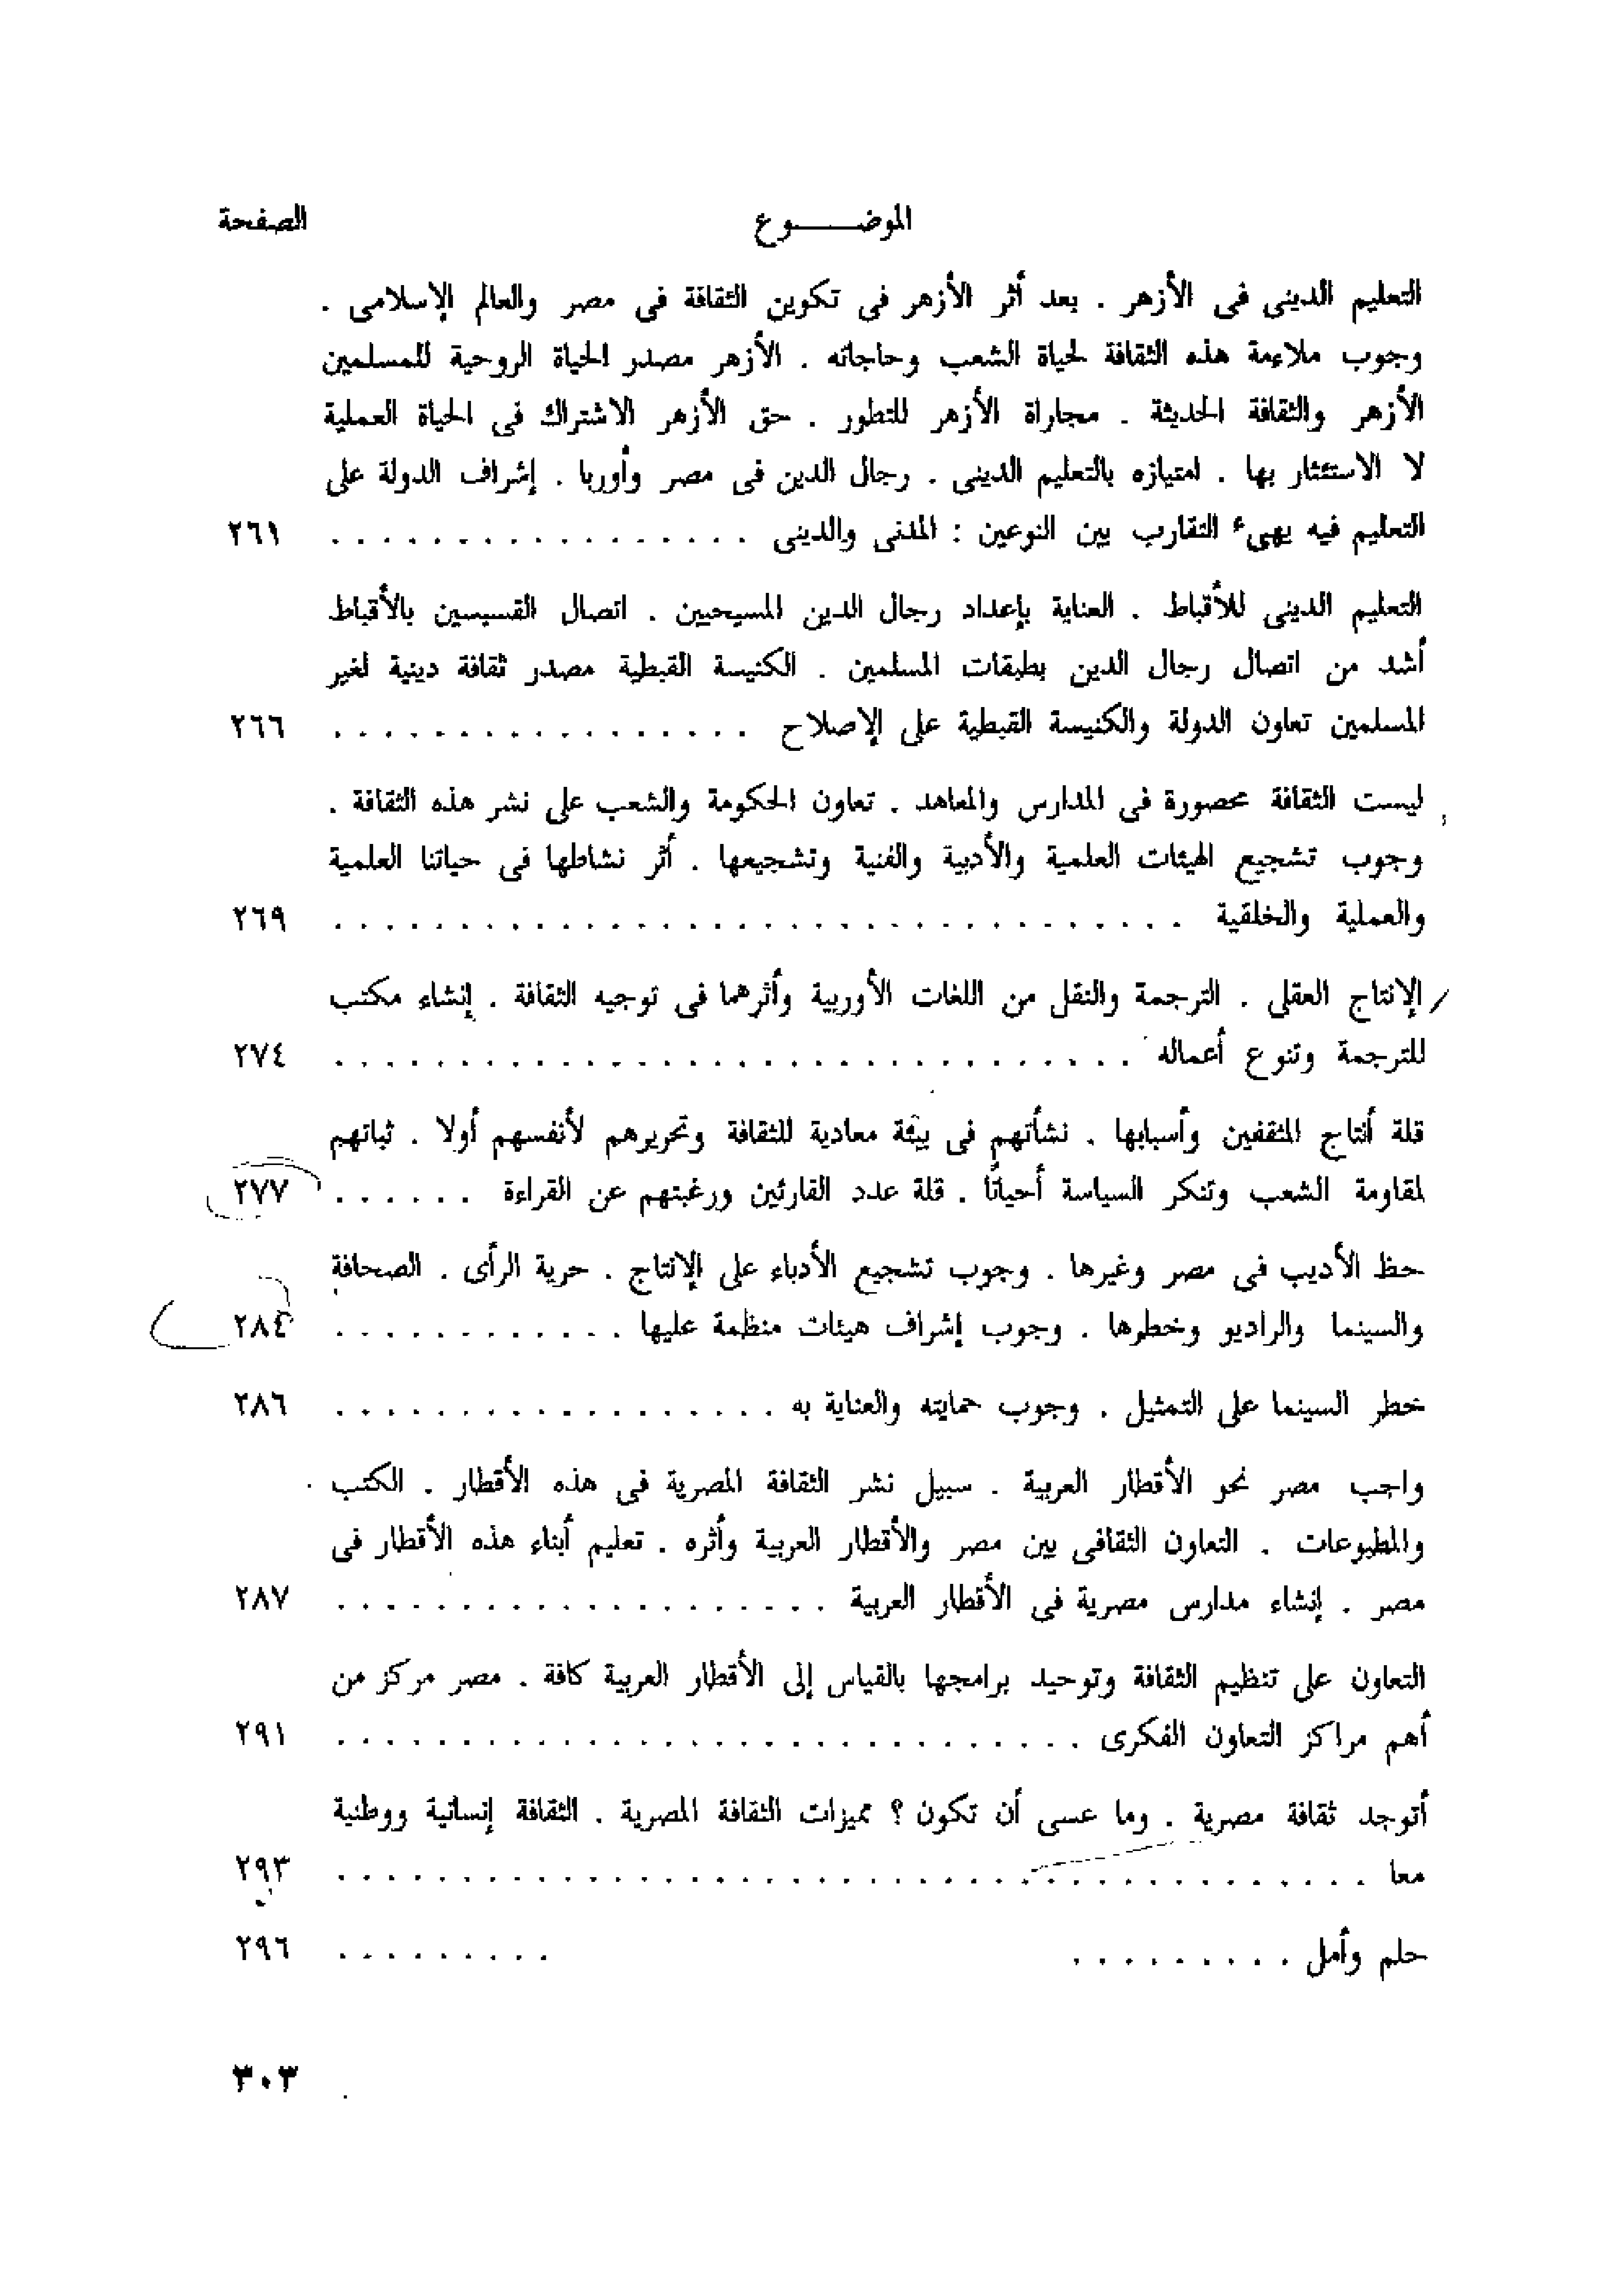 الموضــــــوع الصفحة
التعليم الدينى فى الأزهر . بعد أثر الأزهر فى تكوين الثقافة فى مصر والعالم الإسلامى .
وجوب ملاءمة هذه الثقافة لحياة الشعب وحاجاته . الأزهر مصدر الحياة الروحية للمسلمين
الأزهر والثقافة الحديثة . مجاراة الأزهر للتطور . حق الأزهر الاشتراك فى الحياة العملية
لا الاستئثار بها . امتيازه بالتعليم الدينى . رجال الدين فى مصر وأوربا . إشراف الدولة على
التعليم فيه يهىء التقارب بين النوعين : المدنى والدينى . . . . . . . . . . . . . . . . . ٢٦١
التعليم الدينى للأقباط . العناية بإعداد رجال الدين المسيحيين . اتصال القسيسين بالأقباط
أشد من اتصال رجال الدين بطبقات المسلمين . الكنيسة القبطية مصدر ثقافة دينية لغير
المسلمين تعاون الدولة والكنيسة القبطية على الإصلاح . . . . . . . . . . . . . . . . . ٢٦٦
ليست الثقافة محصورة فى المدارس والمعاهد . تعاون الحكومة والشعب على نشر هذه الثقافة .
وجوب تشجيع الهيئات العلمية والأدبية والفنية وتشجيعها . أثر نشاطها فى حياتنا العلمية
والعملية والخلقية . . . . . . . . . . . . . . . . . . . . . . . . . . . . . . . . . . ٢٦٩
الإنتاج العقلى . الترجمة والنقل من اللغات الأوربية وأثرهما فى توجيه الثقافة . إنشاء مكتب
للترجمة وتنوع أعماله . . . . . . . . . . . . . . . . . . . . . . . . . . . . . . . . ٢٧٤
قلة أنتاج المثقفين وأسبابها . نشأتهم فى بيئة معادية للثقافة وتحريرهم لأنفسهم أولا . ثباتهم
لمقاومة الشعب وتنكر السياسة أحيانًا . قلة عدد القارئين ورغبتهم عن القراءة . . . . . . ٢٧٧
حظ الأديب فى مصر وغيرها . وجوب تشجيع الأدباء على الإنتاج . حرية الرأى . الصحافة
والسينما والراديو وخطرها . وجوب إشراف هيئات منظمة عليها . . . . . . . . . . . . ٢٨٤
خطر السينما على التمثيل . وجوب حمايته والعناية به . . . . . . . . . . . . . . . . . . ٢٨٦
واجب مصر نحو الأقطار العربية . سبيل نشر الثقافة المصرية فى هذه الأقطار . الكتب
والمطبوعات . التعاون الثقافى بين مصر والأقطار العربية وأثره . تعليم أبناء هذه الأقطار فى
مصر . إنشاء مدارس مصرية فى الأقطار العربية . . . . . . . . . . . . . . . . . . . . ٢٨٧
التعاون على تنظيم الثقافة وتوحيد برامجها بالقياس إلى الأقطار العربية كافة . مصر مركز من
أهم مراكز التعاون الفكرى . . . . . . . . . . . . . . . . . . . . . . . . . . . . . . ٢٩١
أتوجد ثقافة مصرية . وما عسى أن تكون ؟ مميزات الثقافة المصرية . الثقافة إنسانية ووطنية
معا . . . . . . . . . . . . . . . . . . . . . . . . . . . . . . . . . . . . . . . . . ٢٩٣
حلم وأمل . . . . . . . . . . . . . . . . . . ٢٩٦
٣٠٣